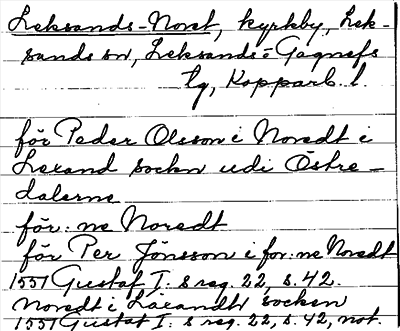 Leksands-Noret, kyrkby, Lek-
sands sn, Leksands-Gagnefs
tg, Kopparb. l.
för Peder Olsson i Noredt i
Lexand sockn udi Östre-
dalerne
för:ne Noredt
för Per Jönsson i for:ne Noredt
1551 Gustaf I:s reg. 22, s. 42.
Noredt i Laxandt socken
1551 Gustaf I:s reg. 22, s. 42, not.